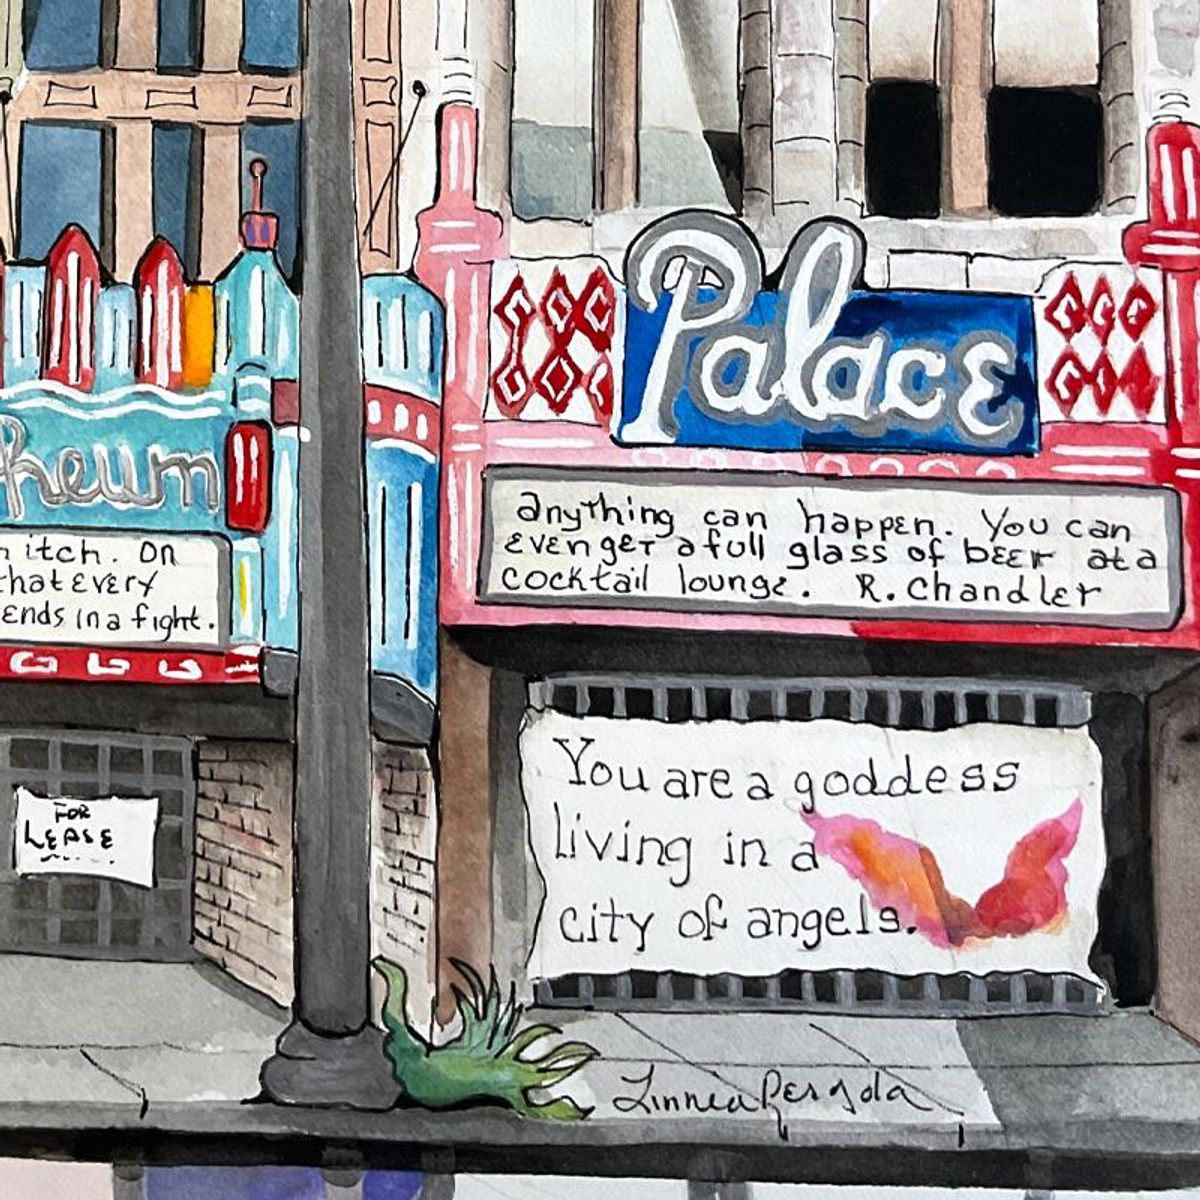 Palace
anything can happen. You can
even get a full glass of beer at a
cocktail lounge. R. Chandler
heum
itch. On
that every
ends in a fight.
FOR
LEASE
You are a goddess
living in a
city of angels.
Linnea Pergola